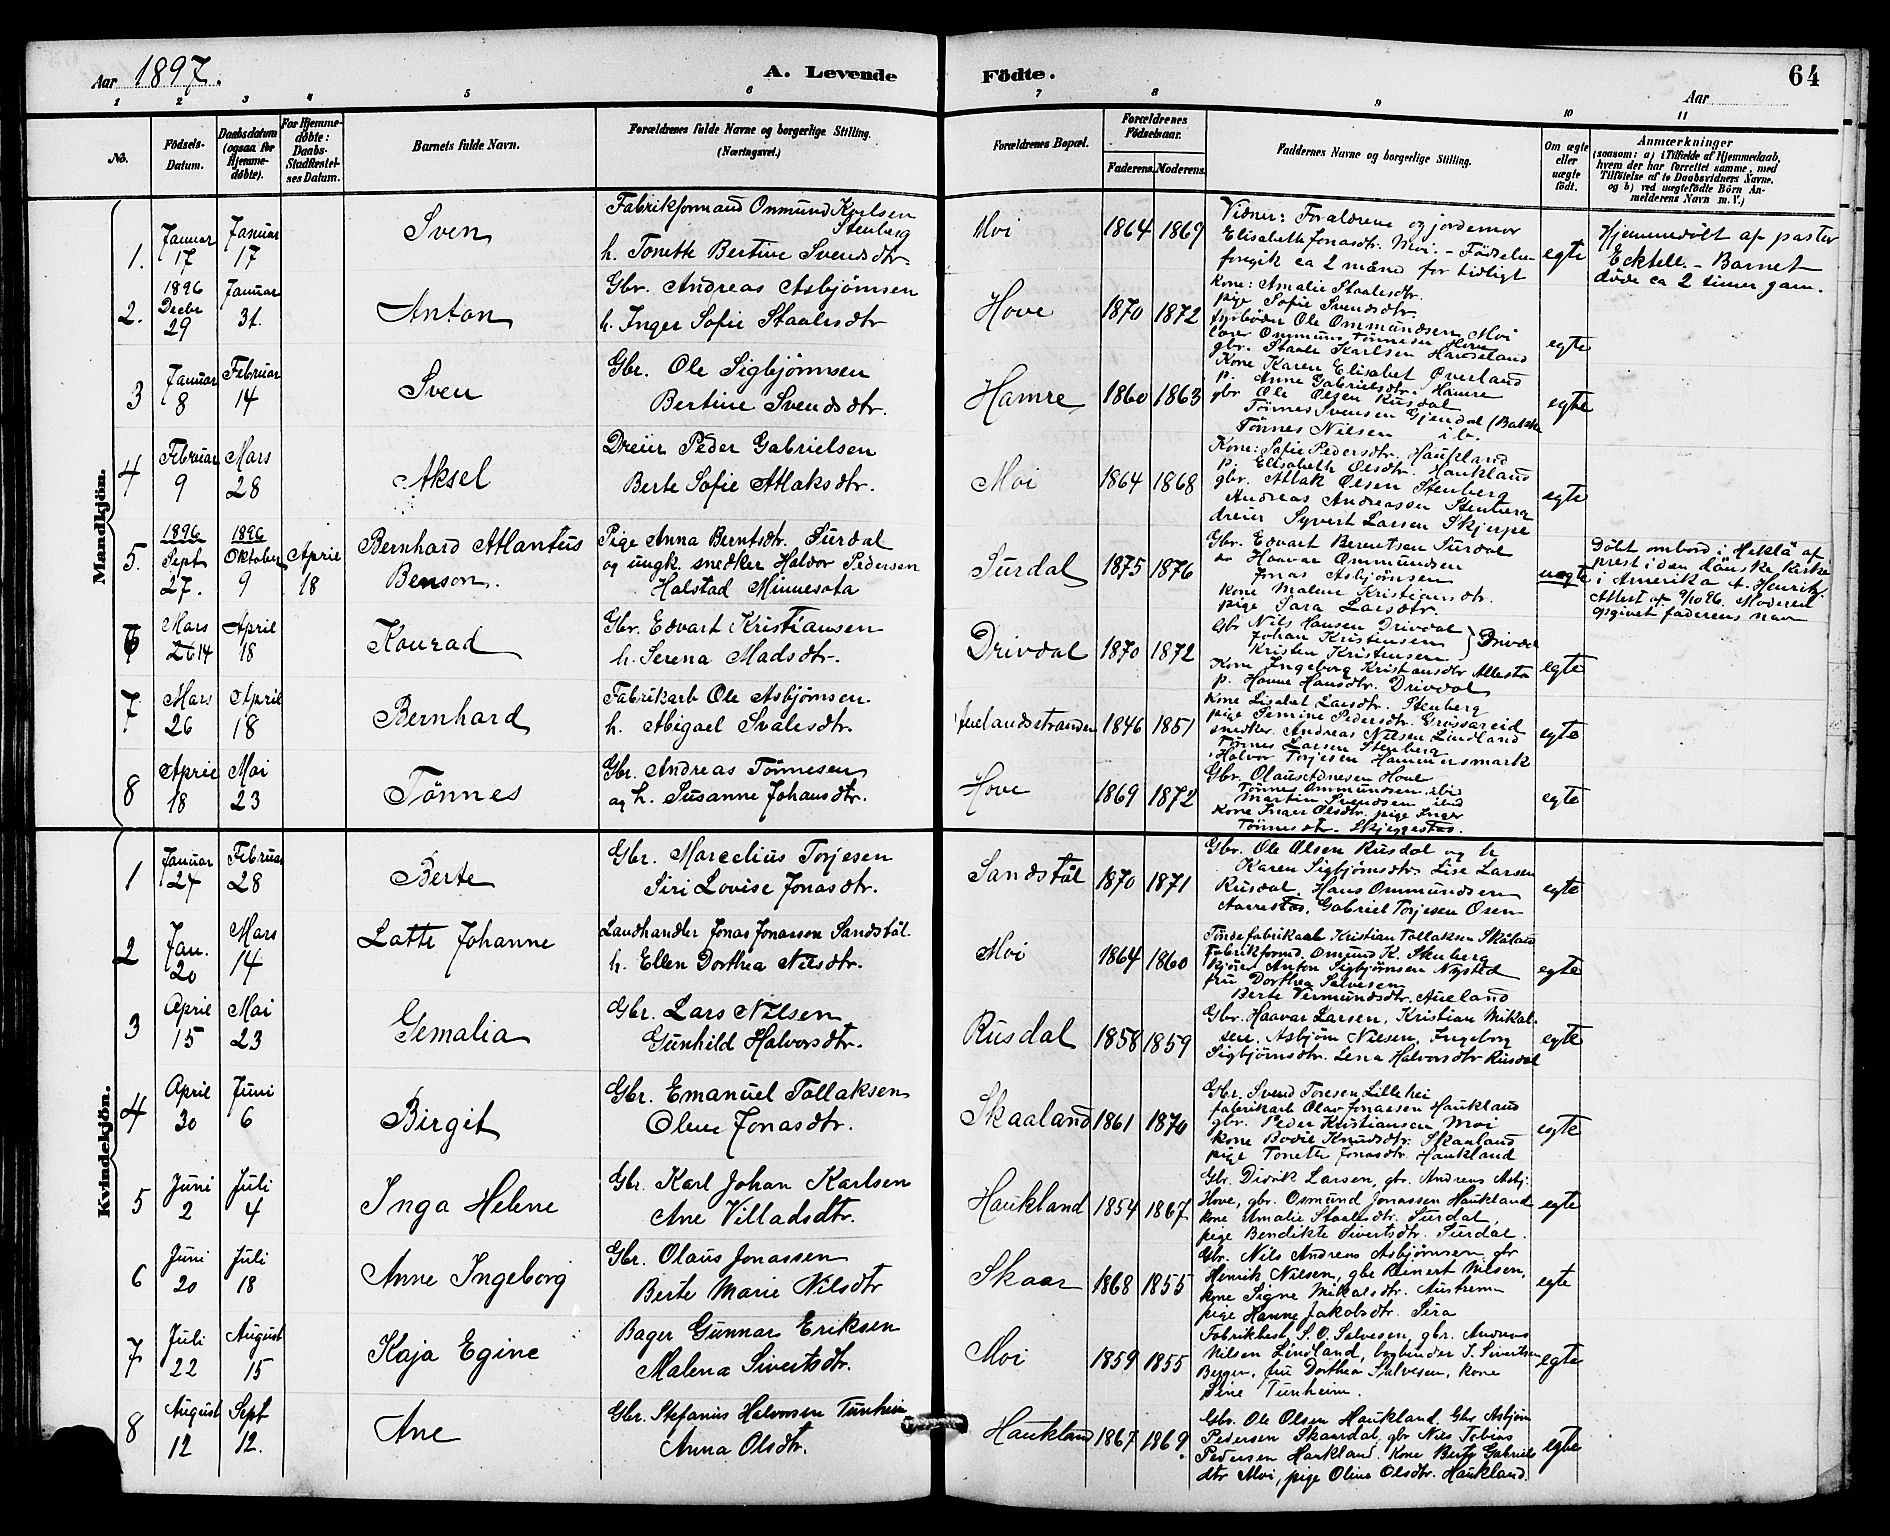 Aar 1897.
A. Levende Födte.
64
Aar
1 2 3 4 5 6 7 8 9 10 11
No.
Födsels-Datum.
Daabsdatum (ogsaa for Hjemmedøbte).
For Hjemmedøbte: Daabs-Stadfæstelses Datum.
Barnets fulde Navn.
Forældrenes fulde Navne og borgerlige Stilling. (Næringsvei.)
Forældrenes Bopæl.
Forældrenes Födselsaar.
Faderens. Moderens.
Faddernes Navne og borgerlige Stilling.
Om ægte eller uægte født.
Anmærkninger
(saasom: a) i Tilfælde af Hjemmedaab, hvem der har forrettet samme, med Tilføielse af to Daabsvidners Navne, og b) ved uægtefødte Börn Anmelderens Navn m. V.)
Mandkjön.
1. Januar 17 Januar 17 Sven
Fabrikformand Onmund Karlsen Stenberg
h. Tonette Bertine Svendsdtr.
Moi 1864 1869
Vidner: Forældrene og jordemor
Elisabeth Jonasdtr. Moi. – Födselen
foregik ca 2 måned for tidligt
egte
Hjemmedöbt af pastor
Ecktell. – Barnet
döde ca 2 timer gam.
2. 1896 Decbr 29 Januar 31. Anton
Gbr. Andreas Asbjörnsen
h. Inger Sofie Staalesdtr
Hove 1870 1872
Kone: Amalie Staalesdtr.
pige Sofie Svendsdtr.
fyrböder Ole Ommundsen Moi
Ommund Tönnesen Hove
gbr. Staale Karlsen Haukland
egte
3 Januar 8 Februar 14 Sven
Gbr. Ole Sigbjörnsen
Bertine Svendsdtr.
Hamre 1860 1863
Kone Karen Elisabet Överland
p. Anne Gabrielsdtr. Hamre
gbr Ole Olsen Rusdal
Tönnes Svensen Gjendal
Tönnes Nilsen
egte
4 Februar 9 Mars 28 Aksel
Dreier Peder Gabrielsen
Berte Sofie Atlaksdtr.
Moi 1864 1868
Kone: Sofie Pedersdtr. Haukland
p. Elisabeth Olsdtr. Haukland
gbr. Atlak Olsen Stenberg
Andreas Andreassen Stenberg
dreier Syvert Larsen Skjerpe
egte
5. 1896 Sept 27. 1896 Oktober 9 April 18 Bernhard Atlantus
Benson.
Pige Anna Berntsdtr. Surdal
og ungk. snedker Halvor Pedersen
Halstad Minnesota
Surdal 1875 1876
Gbr. Edvart Berentsen Surdal
Haavar Ommundsen
Jonas Asbjörnsen
Kone Malene Kristiansdtr.
pige Sara Larsdtr.
uegte
Döbt ombord i Hekla af
prest i den danske kirke
i Amerika A. Henrik.
Attest af 9/10 96. Moderen
opgivet faderens navn
6 Mars 14 April 18 Konrad
Gbr. Edvart Kristiansen
h. Serena Madsdtr.
Drivdal 1870 1872
Gbr Nils Hansen Drivdal
Johan Kristensen
Kristen Kristensen } Drivdal
Kone Ingeborg Kristiansdtr
p. Hanne Hansdtr. Drivdal
egte
7 Mars 26 April 18 Bernhard
Fabrikarb Ole Asbjörnsen.
h. Abigael Svalesdtr.
1846 1851
Kone Lisabet Larsdtr. Stenberg
pige Semine Pedersdtr. Grössareid
snedker. Andreas Nilsen Lindland
Tönnes Larsen Stenberg
Halvor Torjesen Hammersmark
egte
8 April 18 Mai 23 Tönnes
Gbr. Andreas Tönnesen
og h. Susanne Johansdtr.
Hove 1869 1872
Gbr. Olaus Tönnesen Hove
Tönnes Ommundsen ibid
Martin Svendsen ibid
Kone Inger Olsdtr. pige Inger
Tönnesdtr. Skjeggestad.
egte
Kvindekjön.
1 Januar 27 Februar 28 Berte
Gbr. Marcelius Torjesen
Siri Lovise Jonasdtr.
Sandstöl 1870 1871
Gbr. Ole Olsen Rusdal og h
Karen Sigbjörnsdtr. Lise Larsen
Rusdal. Hans Ommundsen
Aarrestad. Gabriel Torjesen Osen
egte
2 Jan. 20 Mars 14 Latte Johanne
Landhandler Jonas Jonassen Sandstöl.
h. Ellen Dorthea Nilsdtr.
Moi 1864 1860
Töndefabrikant Kristian Tollaksen Skåland
Fabrikformd. Omund K. Stenberg
Anton Sigbjörnsen Nysted
fru Dorthea Salvesen
Berte Vermundsdtr. Aueland
egte
3 April 15 Mai 23 Gemalia
Gbr. Lars Nilsen
Gunhild Halvorsdtr.
Rusdal 1858 1859
Gbr. Haavar Larsen, Kristian Mikal-
sen. Asbjörn Nilsen, Ingeborg
Sigbjörnsdtr. Lena Halvorsdtr Rusdal
egte
4 April 30 Juni 6 Birgit
Gbr. Emanuel Tollaksen
Olene Jonasdtr.
Skaaland 1861 1870
Gbr. Svend Toresen Lillehei
fabrikarb Olav Jonassen Haukland
gbr. Peder Kristiansen Moi
kone Bodil Knudsdtr. Skaaland
pige Tonette Jonasdtr Haukland
egte
5 Juni 2 Juli 4 Inga Helene
Gbr. Karl Johan Karlsen
Ane Villadsdtr.
Haukland 1854 1867
Gbr. Didrik Larsen, gbr. Andreas Asbj.
Hove, gbr. Osmund Jonassen Haukland
kone Amalie Staalesdtr. Surdal,
pige Bendikte Sivertsdtr. Surdal.
egte
6 Juni 20 Juli 18 Anne Ingeborg
Gbr. Olaus Jonassen
Berte Marie Nilsdtr
Skaar 1868 1855
Gbr. Nils Andreas Asbjörnsen gbr
Henrik Nilsen, gbr Reinert Nilsen,
kone Signe Mikalsdtr. Austrem
pige Hanne Jakobsdtr. Sira
egte
7 Juli 22 August 15 Kaja Egine
Bager Gunnar Eriksen
Malena Sivertsdtr.
Moi 1859 1855
Fabrikbest. S. O. Salvesen, gbr. Andreas
Nilsen Lindland, bogbinder J. Sivertsen
Berger, fru Dorthea Salvesen, kone
Sine Tunheim.
egte
8 August 12 Sept 12. Ane
Gbr. Stefanus Halvorsen Tunheim
Anna Olsdtr.
Haukland 1867 1869.
Gbr. Ole Olsen Haukland. Gbr Asbjörn
Pedersen Skaardal, gbr Nils Tobias
Pedersen Haukland. Kone Berte Gabriels
dtr Moi, pige Oline Olsdtr. Haukland.
egte